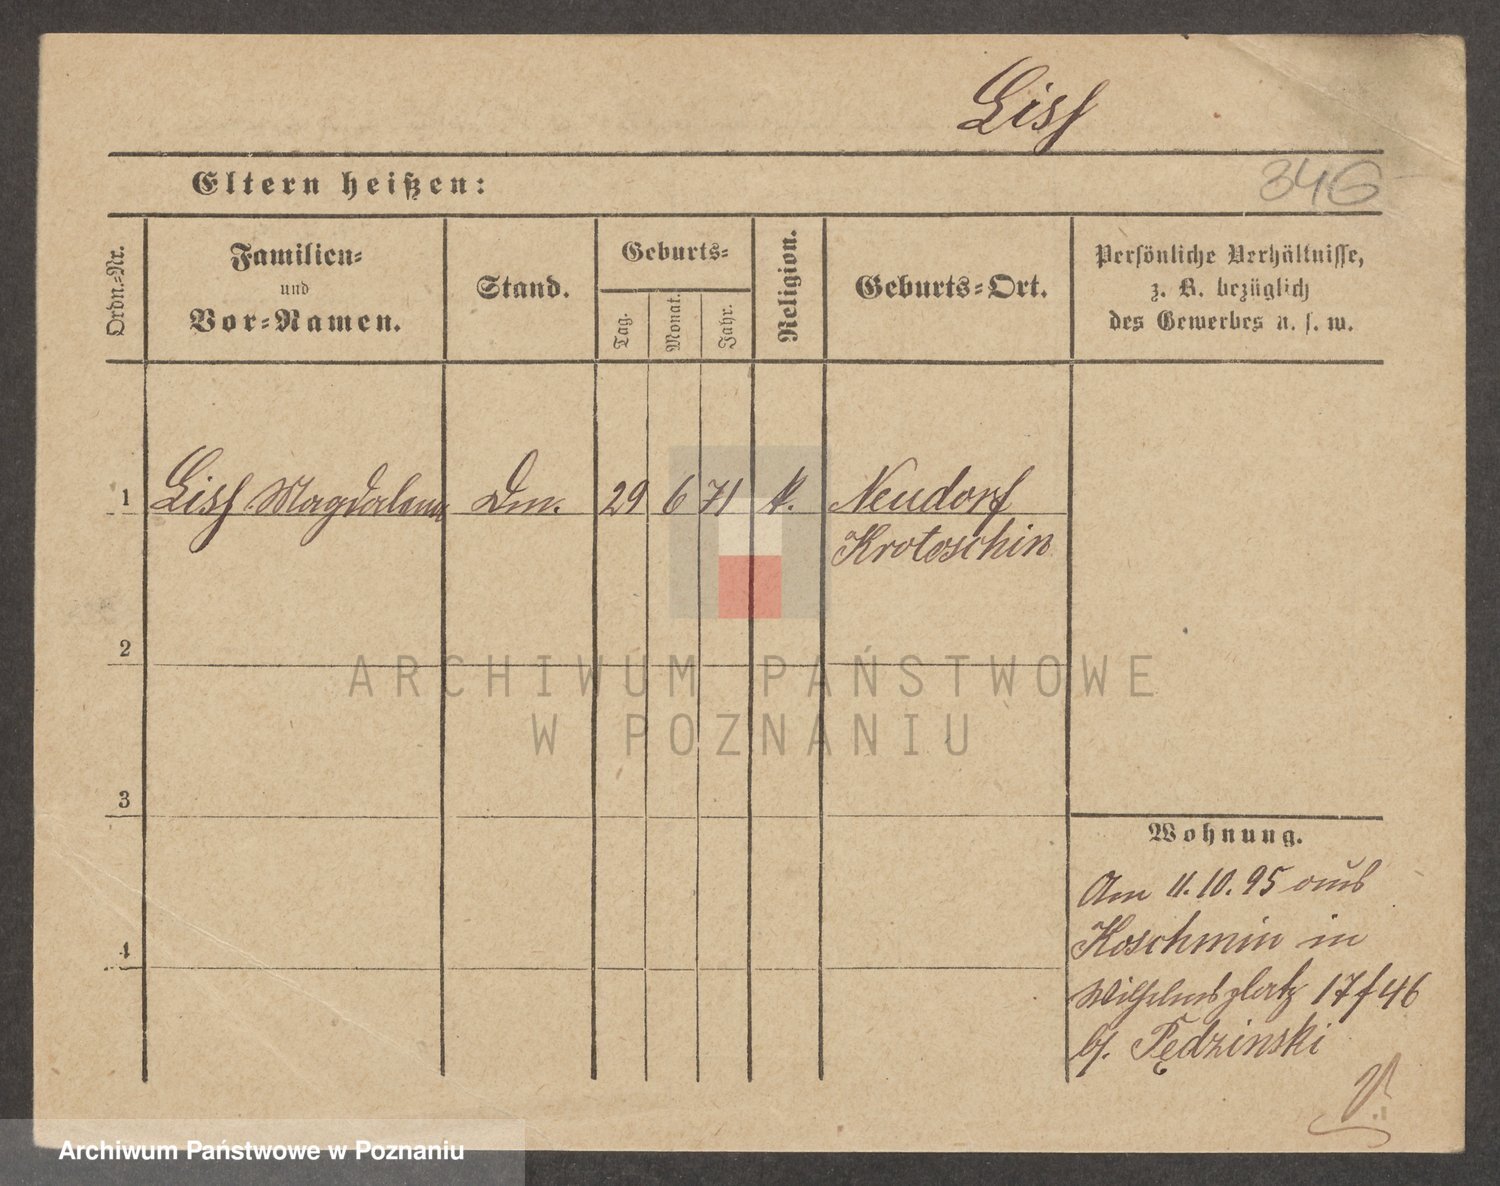 Liss
Eltern heißen:
346
Ordn.-Nr.
Familien-
und
Vor-Namen.
Stand.
Geburts-
Tag.
Monat.
Jahr.
Religion.
Geburts-Ort.
Persönliche Verhältnisse,
z. B. bezüglich
des Gewerbes u. s. w.
1 Liss Magdalena Dm. 29 6 71 k. Neudorf
Krotoschin
2
ARCHIWUM PAŃSTWOWE
W POZNANIU
3
Wohnung.
Am 11.10.95 aus
Koschmin in
4
Wilhelmsplatz 17 f 46
bj. Pędzinski
Archiwum Państwowe w Poznaniu